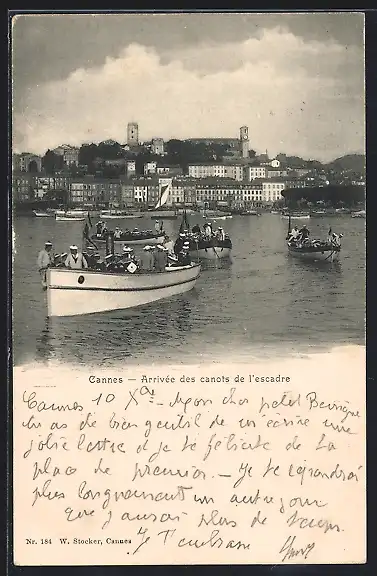 Cannes — Arrivée des canots de l'escadre
Cannes 10 Xbre — Mon cher petit
tu as été bien gentil de m'écrire une
jolie lettre et je te félicite de ta
place de premier. — Je te répondrai
plus longuement un autre jour
que j'aurai plus de temps.
Je t'embrasse
Nr. 184 W. Stocker, Cannes